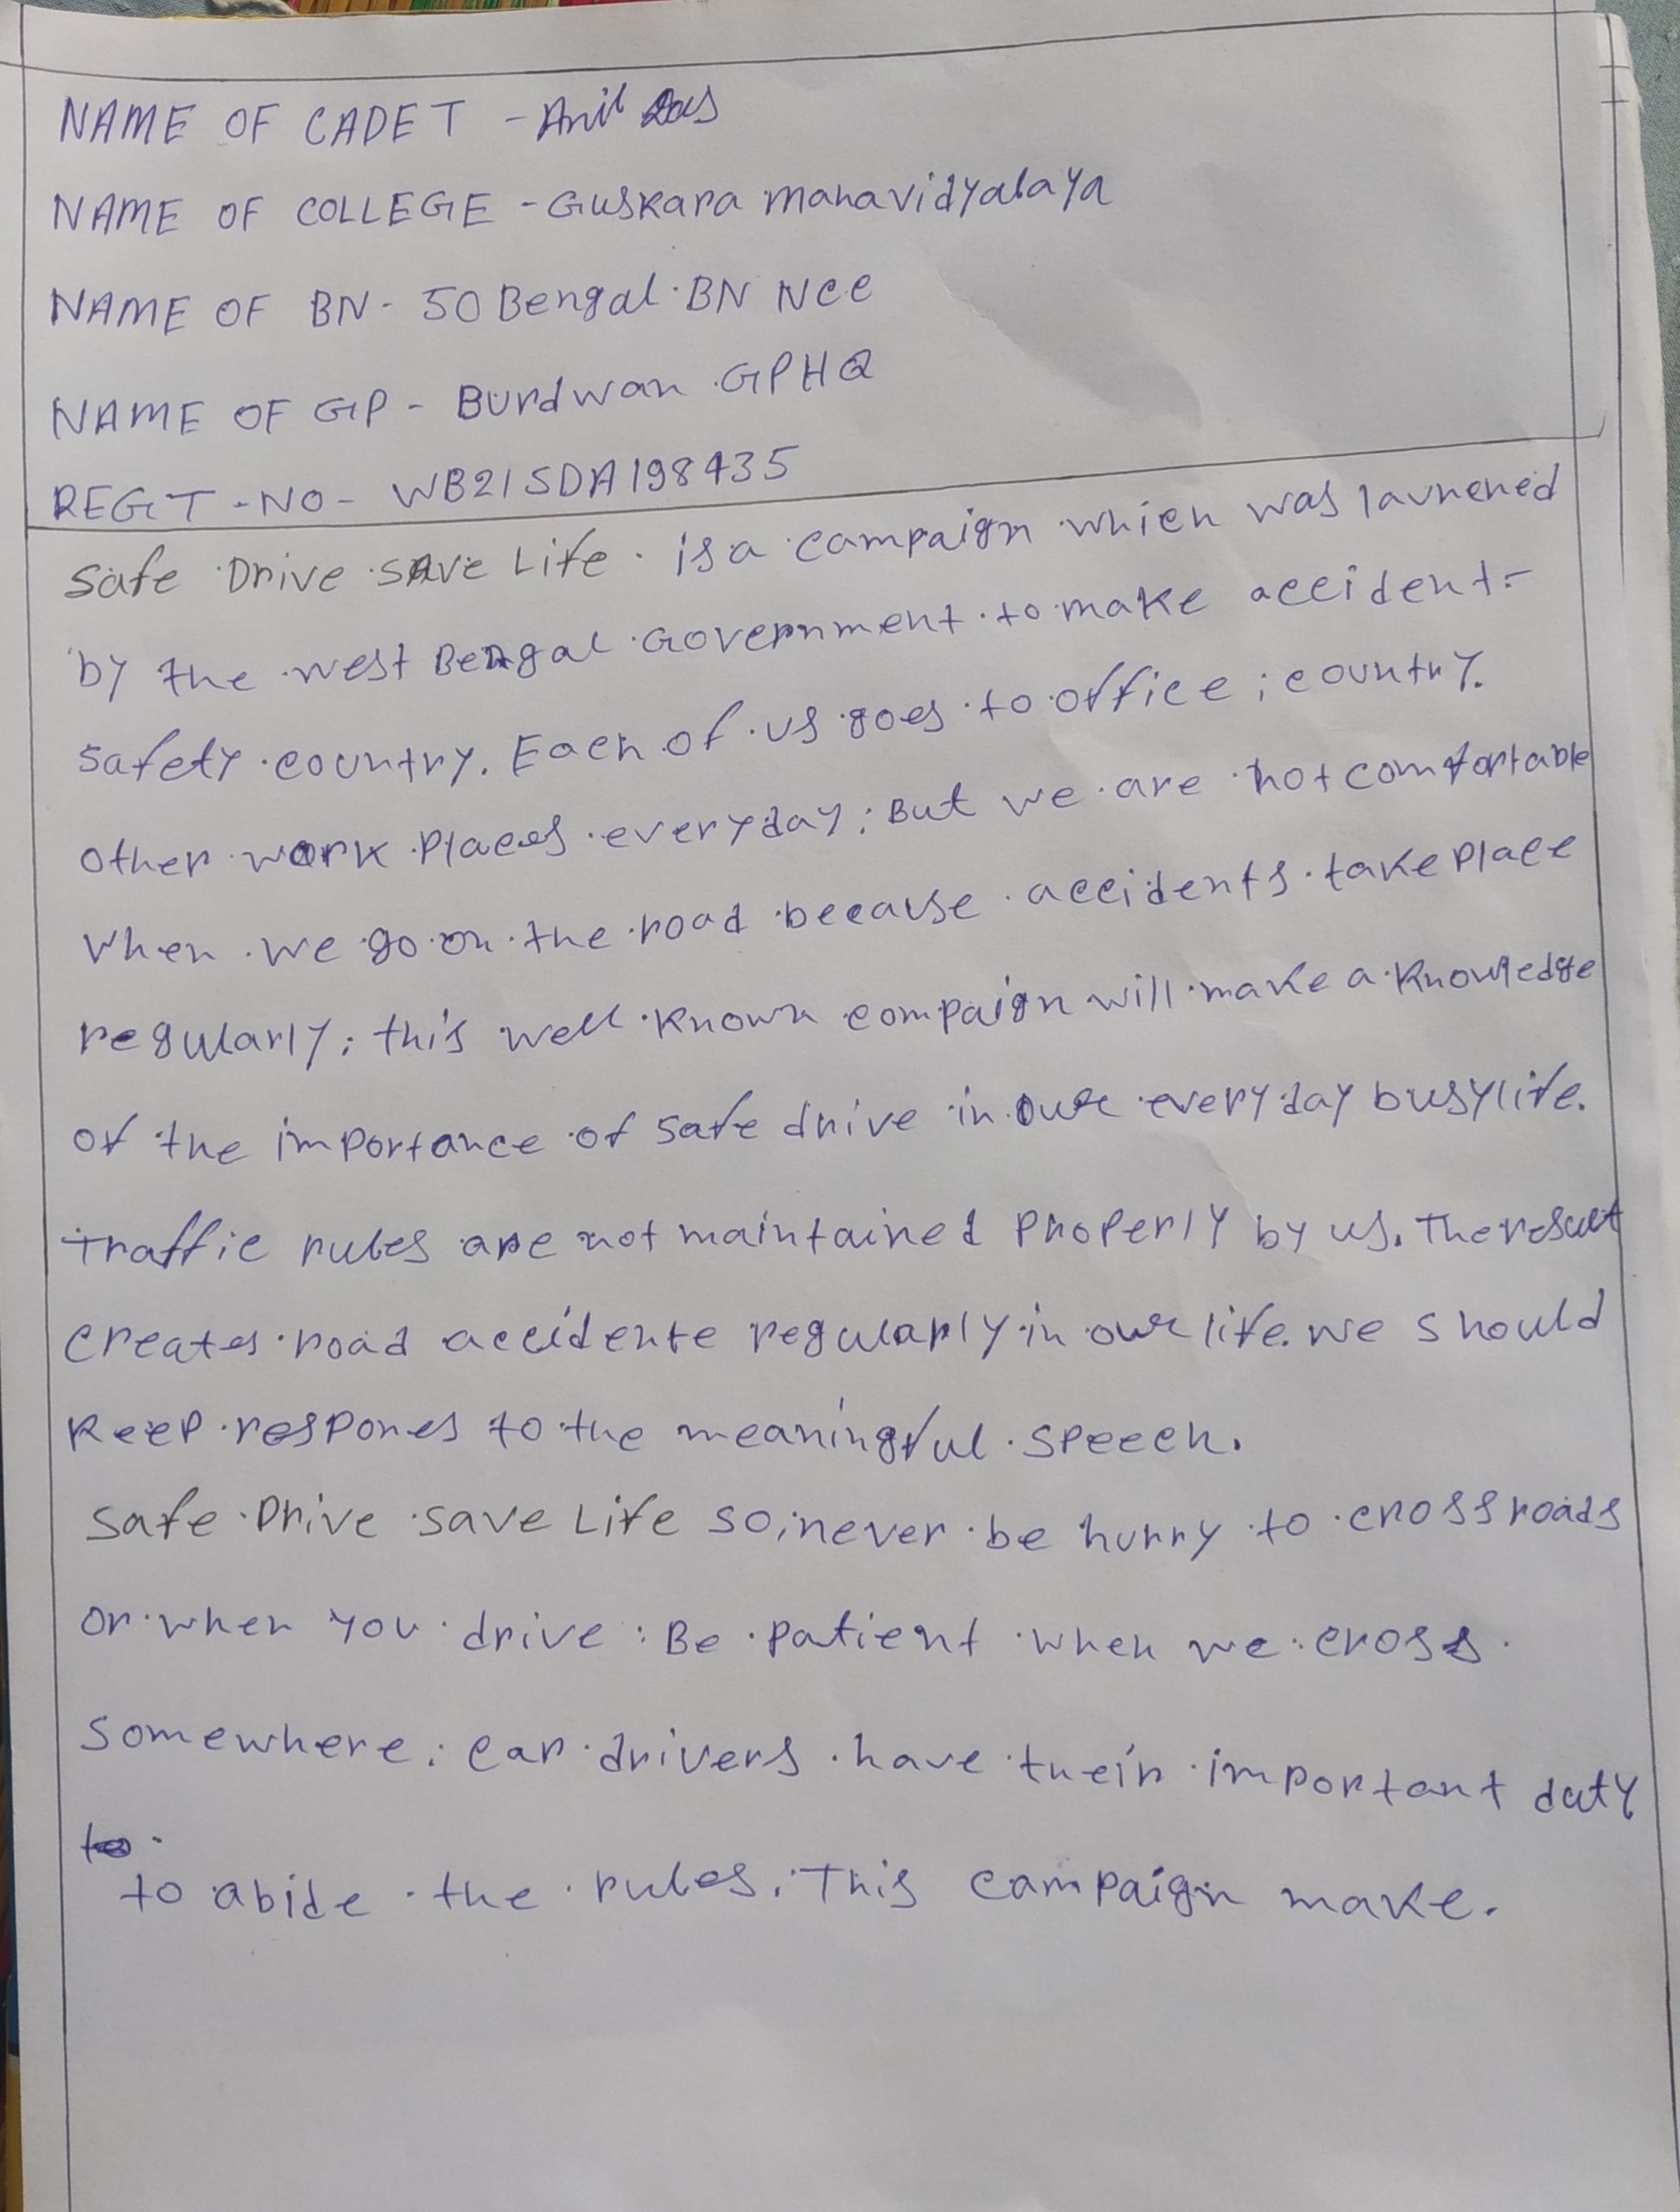 NAME OF CADET - Anil Das
NAME OF COLLEGE - Guskara mahavidyalaya
NAME OF BN - 50 Bengal BN NCC
NAME OF GP - Burdwan GPHQ
REGT - NO - WB21SDA198435
Safe Drive SAve Life is a campaign which was launched
by the west Bengal Government to make accident-
safety country. Each of us goes to office; country.
other work places everyday; But we are not comfortable
when we go on the road because accidents take place
regularly; this well known compaign will make a knowledge
of the importance of safe drive in our every day busy life.
traffic rules are not maintained properly by us. The result
creates road accidente regularly in our life. we should
keep respones to the meaningful speech.
Safe Drive save Life so, never be hurry to cross roads
or when you drive: Be patient when we cross
somewhere; car drivers have their important duty
to abide the rules. This campaign make.